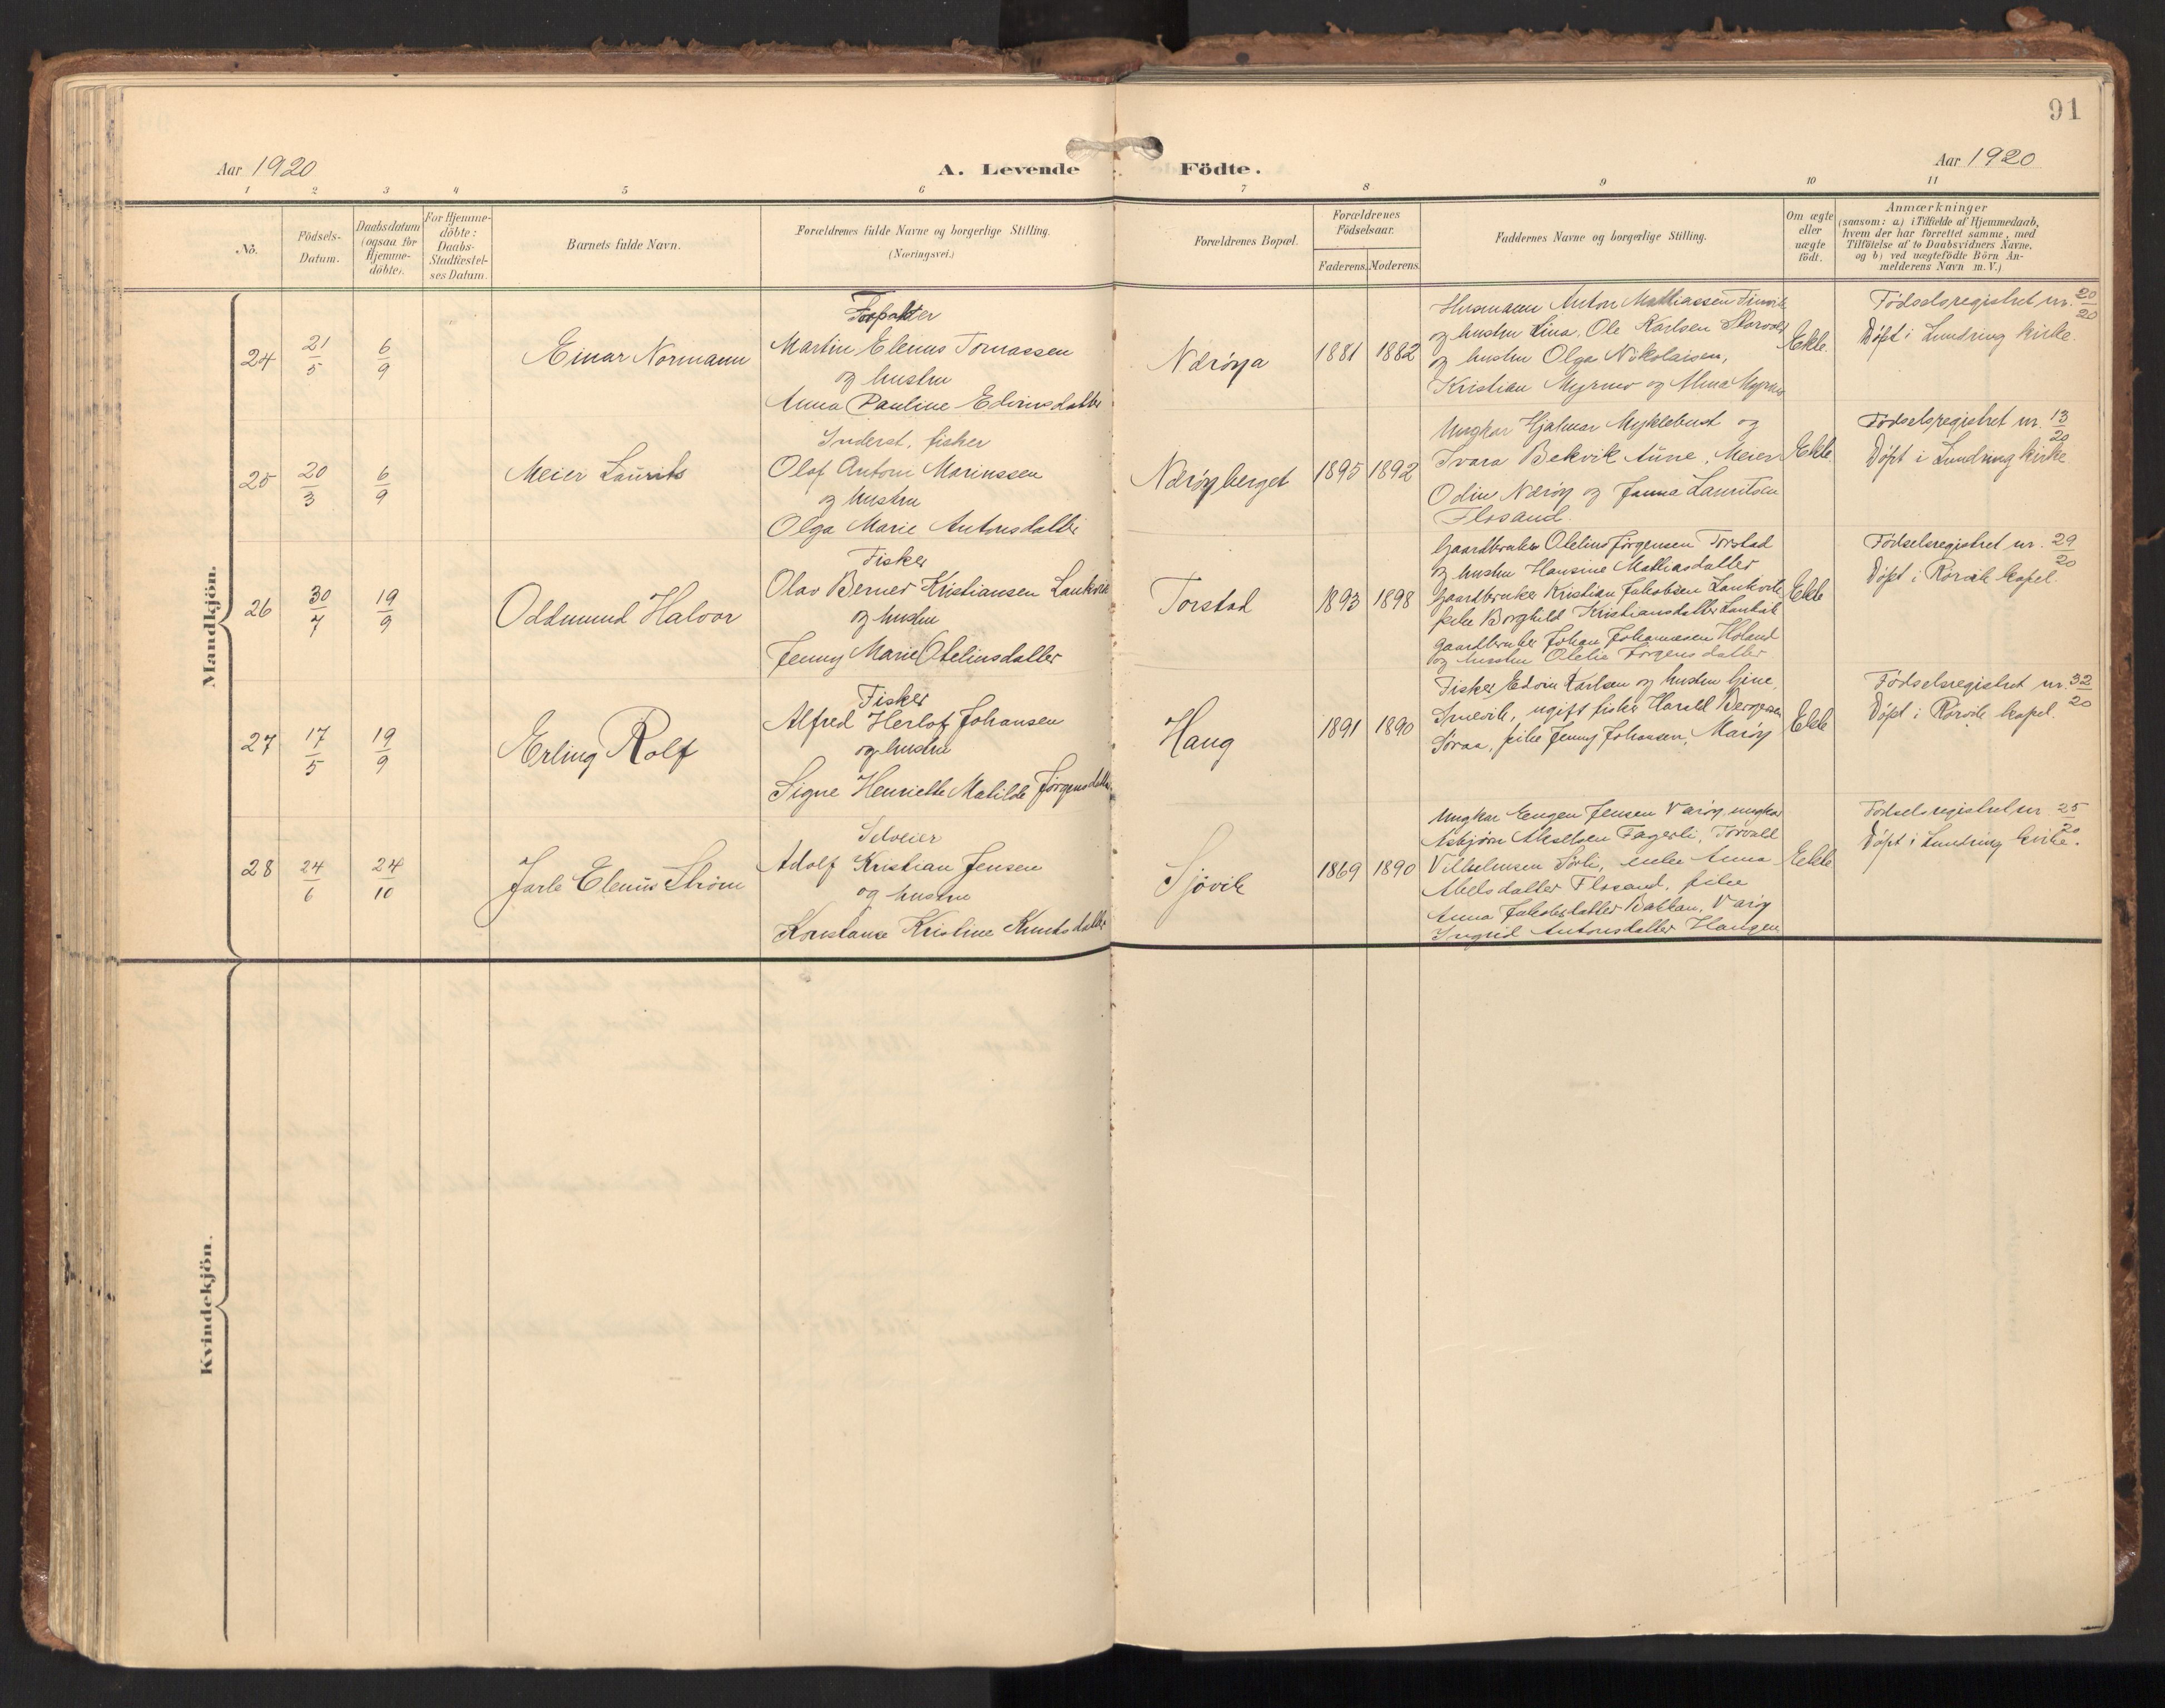 91
Aar 1920
A. Levende Födte.
Aar 1920
1 2 3 4 5 6 7 8 9 10 11
No.
Födsels-Datum.
Daabsdatum (ogsaa for Hjemme-döbte).
For Hjemme-döbte: Daabs-Stadfæstel-ses Datum.
Barnets fulde Navn.
Forældrenes fulde Navne og borgerlige Stilling.
(Næringsvei.)
Forældrenes Bopæl.
Forældrenes Födselsaar.
Faderens. Moderens.
Faddernes Navne og borgerlige Stilling.
Om ægte eller uægte födt.
Anmærkninger
(saasom: a) i Tilfælde af Hjemmedaab,
hvem der har forrettet samme, med
Tilföielse af to Daabsvidners Navne,
og b) ved uægtefödte Börn An-
melderens Navn m. V.)
Mandkjön.
24
21/5
6/9
Einar Normann
Forpakter
Martin Elenus Tomassen
og hustru
Anna Pauline Edinsdatter
Nærøya
1881 1882
Husmann Anton Mathiassen Finvik
og hustru Lina. Ole Karlsen
og hustru Olga Nikolaisen,
Kristian Myrmo og Alma Myrmo
Ekte.
Fødselsregistret nr. 20/20
Døpt i Lundring kirke.
25
20/3
6/9
Meier Laurits
Inderst, fisker
Olaf Anton Marinssen
og hustru
Olga Marie Antonsdatter
Nærøyberget
1895 1892
Ungkar Hjalmar Myklebust og
Svara Bekvik Aune, Meier
Odin Nærøy og Janna Lauritsen
Flosand.
Ekte.
Fødselsregistret nr. 13/20
Døpt i Lundring kirke
26
30/7
19/9
Oddmund Halvor
Fisker
Olav Berner Kristiansen Lankvik
og hustru
Jenny Marie Otelinsdatter
Torstad
1893 1898
Gaardbruker Otelius Jørgensen Torstad
og hustru Hansine Mathiasdatter
gaardbruker Kristian Jakobsen Lankvik
pike Borghild Kristiansdatter Lankvik
gaardbruker Johan Johannesen Høland
og hustru Oletie Jørgensdatter
Ekte
Fødselsregistret nr. 29/20
Døpt i Rørvik kapel.
27
17/5
19/9
Erling Rolf
Fisker
Alfred Herlof Johansen
og hustru
Signe Henriette Matilde Jørgensdatter.
Haug
1891 1890
Fisker Edvin Karlsen og hustru Gine,
ugift fisker Harald Bergesen
pike Jenny Johansen, Marøy
Ekte
Fødselsregistret nr. 32/20
Døpt i Rørvik kapel.
28
24/6
24/10
Jarle Elenus Strøm
Selveier
Adolf Kristian Jensen
og hustru
Konstanse Kristine Knutsdatter
Sjøvik
1869 1890
Ungkar Eugen Jensen Varøy, ungkar
Asbjørn Akselsen Fagerli, Torvald
Vilhelmsen Sørli, enke Anna
Abelsdatter Flosand, pike
Anna Jakobsdatter Bakkan, Varøy
Ingrid Antonsdatter Haugen
Ekte
Fødselsregistret nr 25/20
Døpt i Lundring kirke.
Kvindekjön.